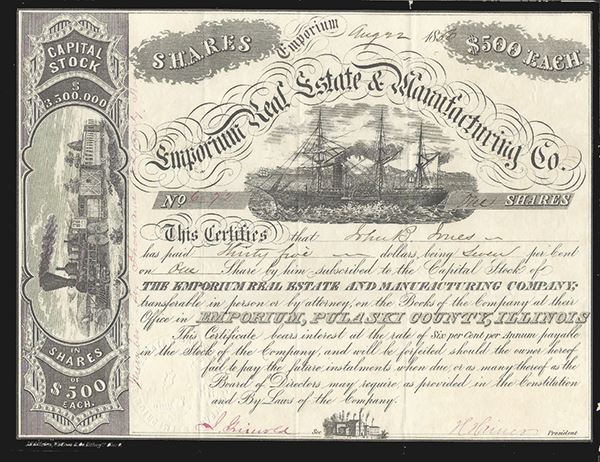 CAPITAL
STOCK
$
3,500,000
IN
SHARES
OF
$500
EACH.
SHARES
Emporium Aug 22 18
$500 EACH.
Emporium Real Estate & Manufacturing Co.
No
One SHARES
This Certifies that John B. Jones
has paid Thirty five dollars, being Seven per Cent
on One Share by him subscribed to the Capital Stock of
THE EMPORIUM REAL ESTATE AND MANUFACTURING COMPANY;
transferable in person or by attorney, on the Books of the Company at their
Office in EMPORIUM, PULASKI COUNTY, ILLINOIS
This Certificate bears interest at the rate of Six per Cent per Annum payable
in the Stock of the Company, and will be forfeited should the owner hereof
fail to pay the future instalments when due, or as many thereof as the
Board of Directors may require, as provided in the Constitution
and By Laws of the Company.
Griswold Sec
President